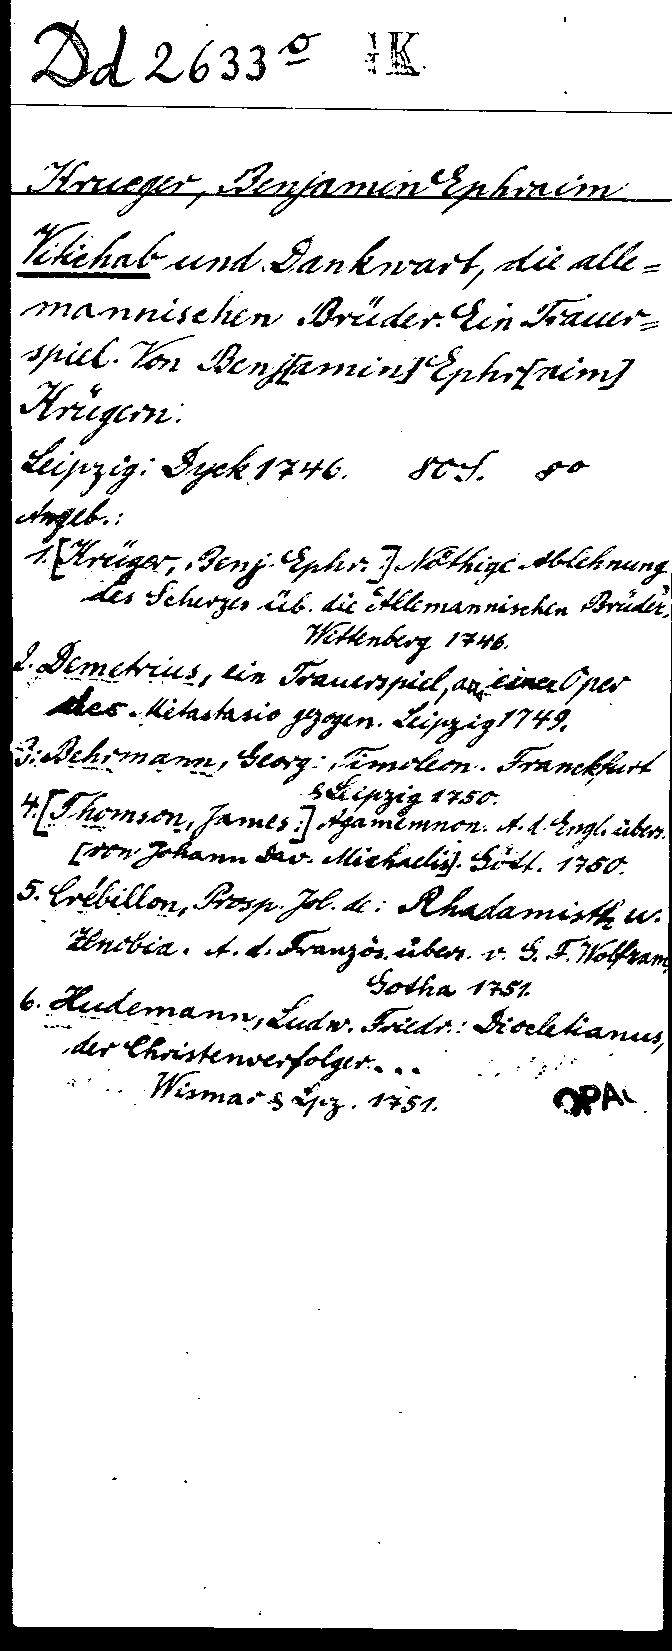 Dd 2633 º K
Krueger, Benjamin Ephraim
Vitichab und Dankwart, die alle=
mannischen Brüder. Ein Trauer=
spiel. Von Benj[amin] Ephr[aim]
Krügern.
Leipzig: Dyck 1746. 80 S. 8º
Angeb.:
1. [Krüger, Benj. Ephr.:] Nöthige Ablehnung
des Scherzes üb. die "Allemannischen Brüder".
Wittenberg 1746.
2. Demetrius, ein Trauerspiel, aus einer Oper
des Metastasio gezogen. Leipzig 1749.
3. Behrmann, Georg: Timoleon. Franckfurt
& Leipzig 1750.
4. [Thomson, James:] Agamemnon. A. d. Engl. übers.
[von Johann Dav. Michaelis]. Gött. 1750.
5. Crébillon, Prosp. Jol. de: Rhadamisth u.
Zenobia. A. d. Französ. übers. v. G. F. Wolfram,
Gotha 1751.
6. Hudemann, Ludw. Friedr.: Diocletianus,
der Christenverfolger...
Wismar & Lpz. 1751.
OPAC